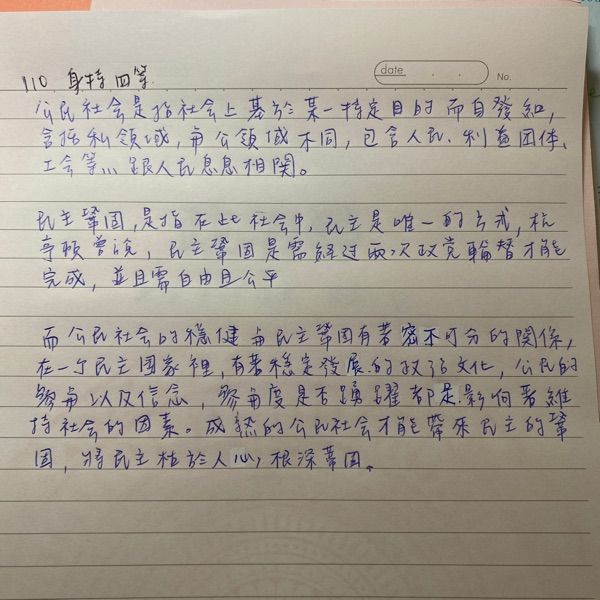 date
No.
110 身特四等
公民社会是指社会上基於某一特定目的而自發組,
含括私領域,與公領域不同,包含人民、利益团体、
工会等... 跟人民息息相関。
民主鞏固,是指在此社会中,民主是唯一的方式,杭
亭頓曾說,民主鞏固是需経过兩次政党輪替才能
完成,並且需自由且公平
而公民社会的穩健與民主鞏固有著密不可分的関係,
在一个民主国家裡,有著穩定發展的政治文化,公民的
參與以及信念,參與度是否踴躍都是影响著維
持社会的因素。成熟的公民社会才能帶來民主的鞏
固,將民主植於人心,根深蒂固。